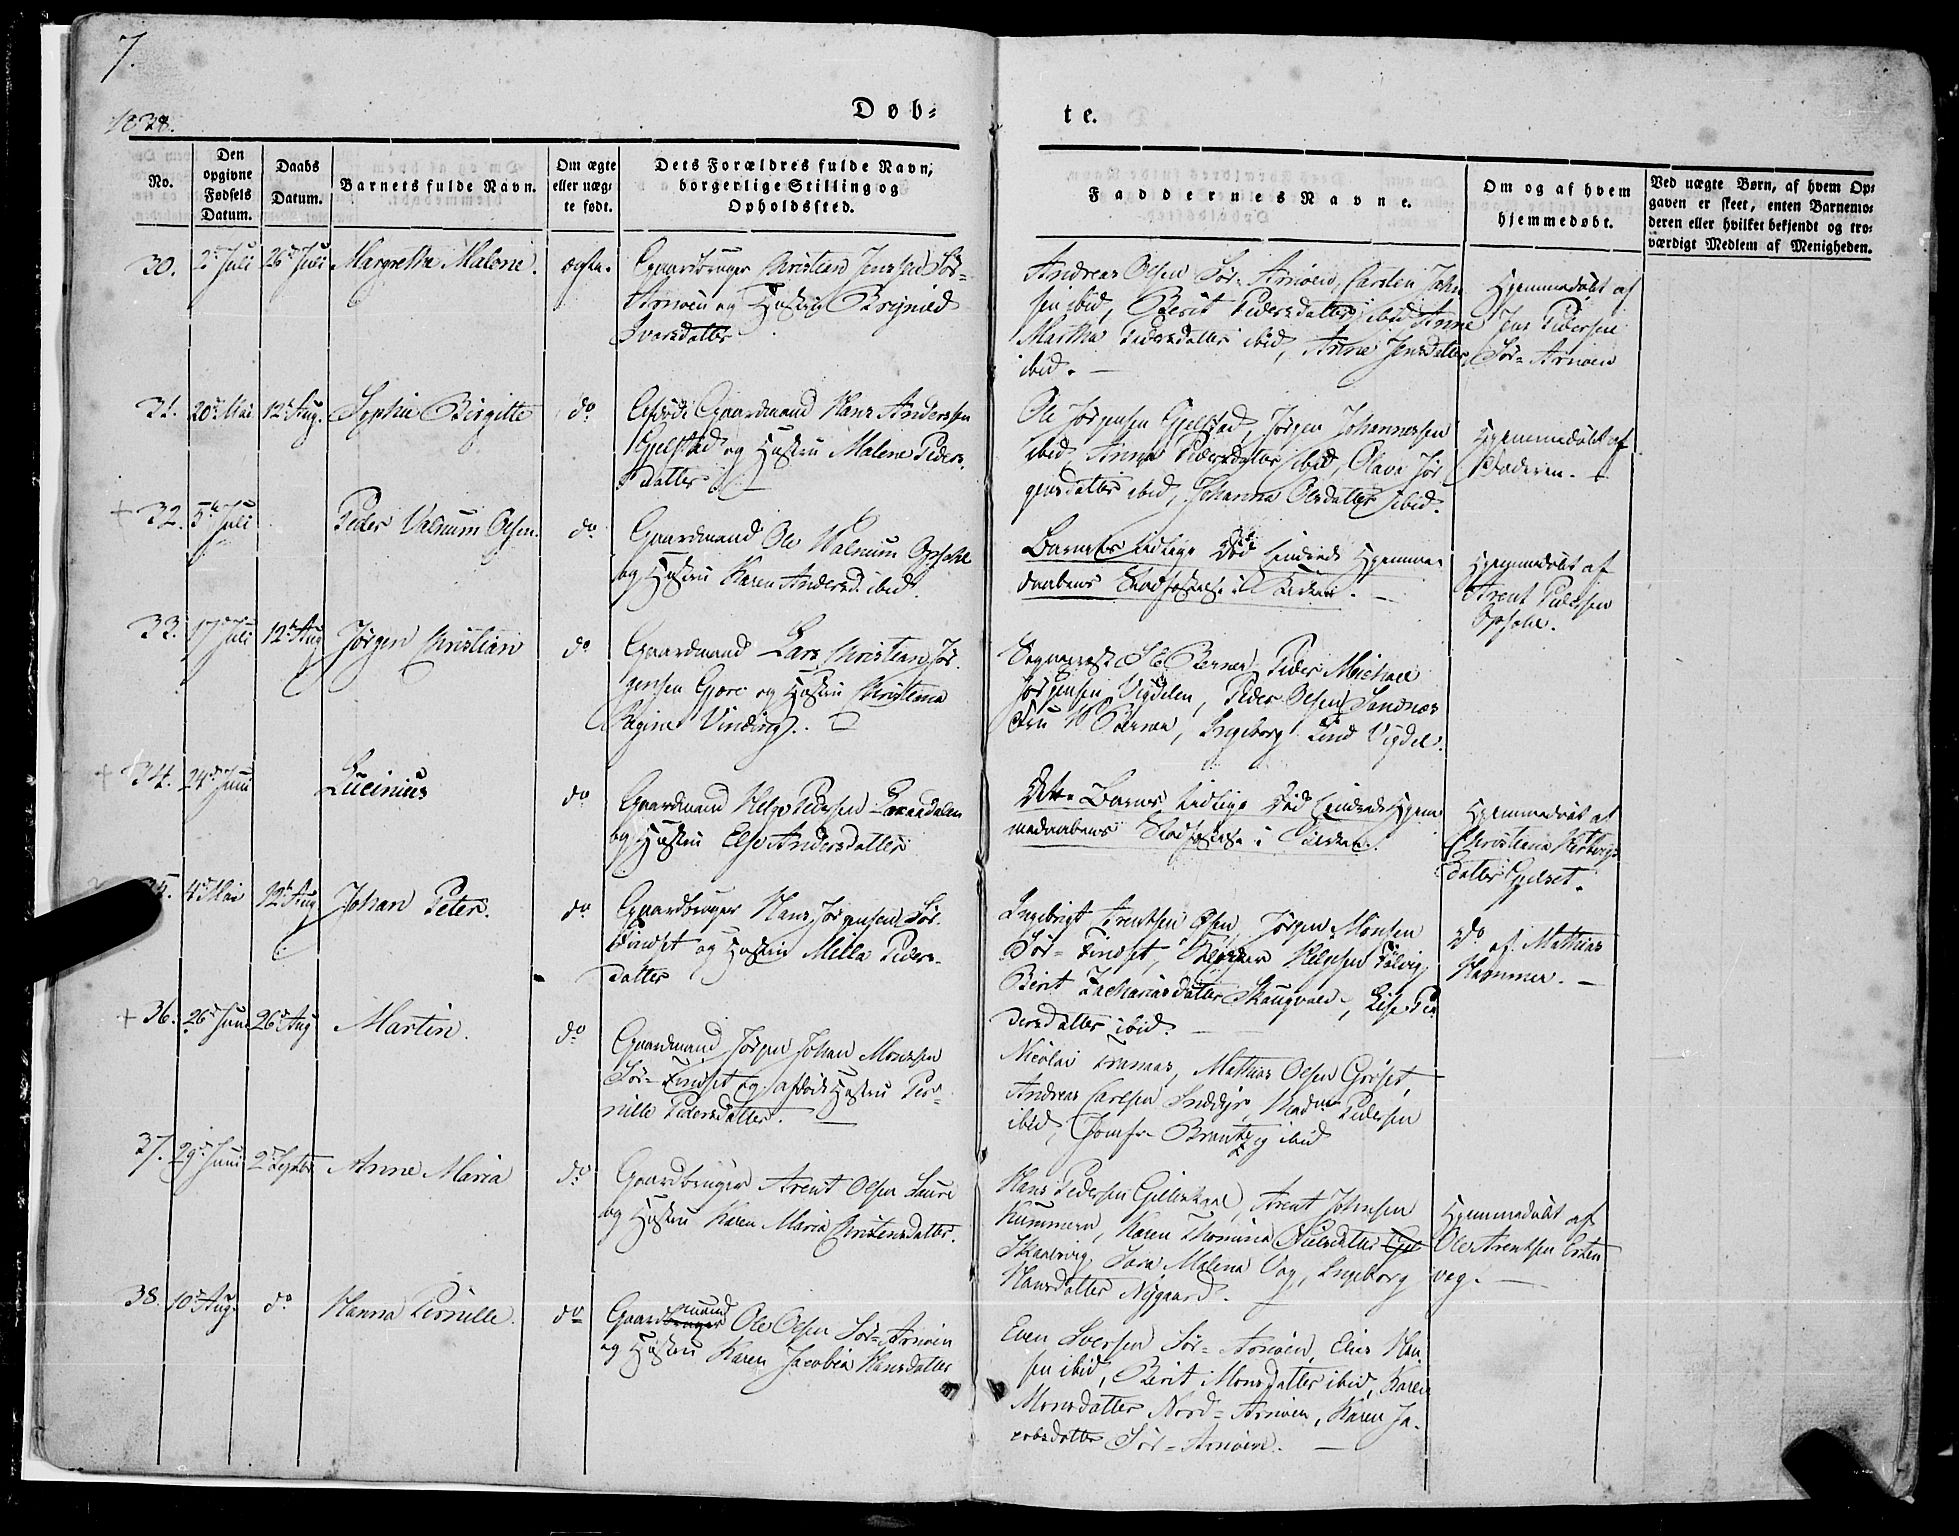 7.
1838.
Døb-
te.
No.
Den opgivne Fødsels Datum.
Daabs Datum.
Barnets fulde Navn.
Om ægte eller uæg-te født.
Dets Forældres fulde Navn, borgerlige Stilling og Opholdssted.
Faddernes Navne.
Om og af hvem hjemmedøbt.
Ved uægte Børn, af hvem Op-
gaven er skeet, enten Barnemo-
deren eller hvilket bekjendt og tro-
værdigt Medlem af Menigheden.
30. 2d Juli 26d Juli Margretha Malene. ægte.
Gaardbruger Christian Jensen Sør-
Arnøen og Hustru
Ivarsdatter
Andreas Olsen Sør-Arnøen, Carsten John
sen ibid, Berit Pedersdatter ibid Anne
Martha Pedersdatter ibid, Anne Jensdatter
ibid.
Hjemmedøbt af
Jens Pedersen
Sør-Arnøen
31. 20d Mai 12t Aug. Sophie Birgitte do
Gaardmand Hans Andersen
Gjelstad og Hustru Malene Peders
datter
Ole Jørgensen Gjelstad, Jørgen Johannessen
ibid, Anna Pedersdatter ibid, Olava Jør
gensdatter ibid, Johanna Olsdatter ibid.
Hjemmedøbt af
Faderen.
+ 32. 5te Juli Peder Valnum Olsen. do
Gaardmand Ole Valnum Opsahl
og Hustru Karen Andersd. ibid.
Barnets tidlige Død hindrede Hjemme-
daabens Stadfæstelse i Kirken.
Hjemmedøbt af
Arent Pedersen
Opsahl.
33. 17d Juli 12t Aug Jørgen Christian do
Gaardmand Lars Christian Jør
gensen Gjære og Hustru Christina
Regine Vinding.
Sognepræst Peder Michael
Jørgensen Vigdelen, Peder Olsen Sandnæs
Ingeborg Lind Vigdel.
+ 34. 24d Juni Lucinius do
Gaardmand Helge Pedersen
og Hustru Else Andersdatter
Dette Barns tidlige Død hindrede Hjem
medaabens Stadfæstelse i Kirken.
Hjemmedøbt af
Christiana
datter Gjelset.
35. 4d Mai 12t Aug Johan Peter. do
Gaardbruger Hans Jørgensen Sør-
Findset og Hustru Milla Peders-
datter
Ingebrigt Arentsen Jørgen Monsen
Sør-Findset, Helgesen
Berit Zachariasdatter Skaugvold, Else Pe
dersdatter ibid.
do af Mathias
Hammer.
+ 36. 26d Juni 26d Aug Martin. do
Gaardmand Jørgen Johan Monsen
Sør-Findset og afdøde Hustru Per-
nille Pedersdatter.
Nicolai Mathias Olsen Gröset,
Andreas Carlsen Inddyr, Pedersen
ibid, Jomfr. ibid
37. 29d Juni 2d Septbr Anne Maria do
Gaardbruger Arent Olsen
og Hustru Karen Maria Christensdatter.
Hans Pedersen Gillesvaal, Arent Johnsen
Karen Thomina Nielsdatter
Skaalsvig, Sara Malena Vaag, Ingeborg
Hansdatter Nygaard.
Hjemmedøbt af
Ole Arentsen
vaag.
38. 10d Aug. do Hanna Pernille. do
mand
Gaardbruger Ole Olsen Sør-Arnøen
og Hustru Karen Jacobea Hansdatter
Even Iversen Sør-Arnøen, Elias Han
sen ibid, Berit Monsdatter ibid, Karen
Monsdatter Nord-Arnøen, Karen Ja-
cobsdatter Sør-Arnøen.